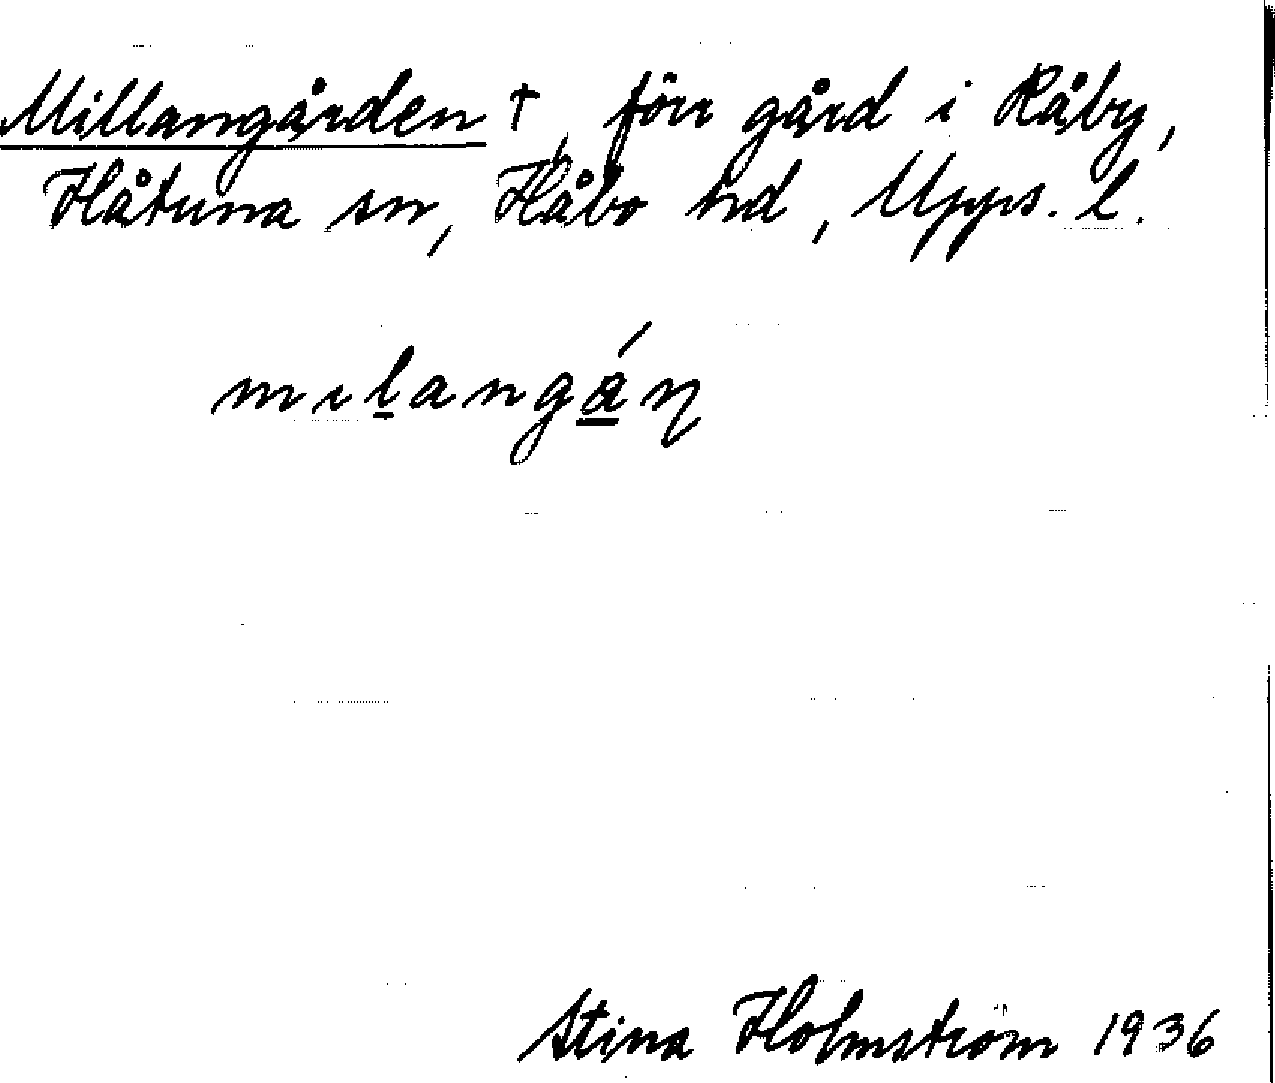 Millangården †, förr gård i Råby,
Håtuna sn, Håbo hd, Upps. l.
mılangán
Stina Holmström 1936